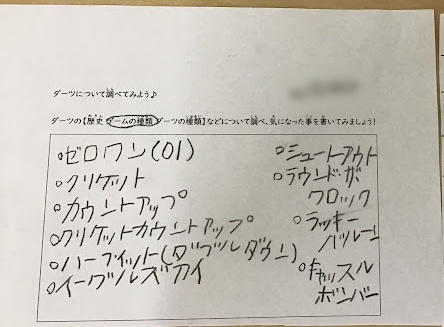 ダーツについて調べてみよう♪
ダーツの【歴史 ゲームの種類 ダーツの種類】などについて調べ、気になった事を書いてみましょう!
○ゼロワン(01)
○クリケット
○カウントアップ
○クリケットカウントアップ
○ハーフイット(ダブルダウン)
○イーグルズアイ
○シュートアウト
○ラウンド・ザ
クロック
○ラッキー
バルーン
○キャッスル
ボンバー